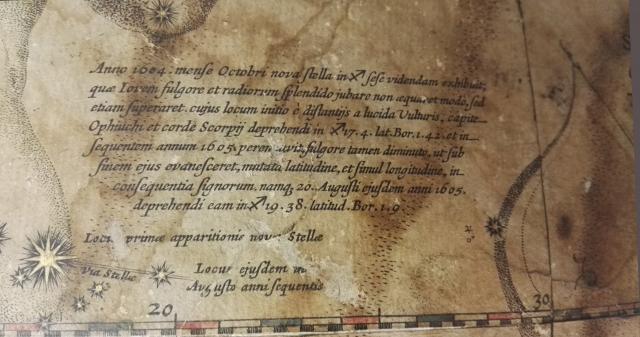 Anno 1604. mense Octobri nova stella in ♐ sese videndam exhibuit,
quæ Iovem fulgore et radiorum splendido jubare non æquaret modo, sed
etiam superaret. cujus locum initio è distantijs a lucida Vulturis, capite
Ophiuchi et corde Scorpij deprehendi in ♐ 17.4. lat. Bor. 1.42. et in
sequentem annum 1605. fulgore tamen diminuto, ut sub
finem ejus evanesceret, mutata latitudine, et simul longitudine, in
consequentia signorum. namq, 20. Augusti ejusdem anni 1605.
deprehendi eam in ♐ 19.38. latitud. Bor. 1.9
primæ apparitionis Stellæ
Via Stellæ
Locus ejusdem
Augusto anni sequentis
20
30